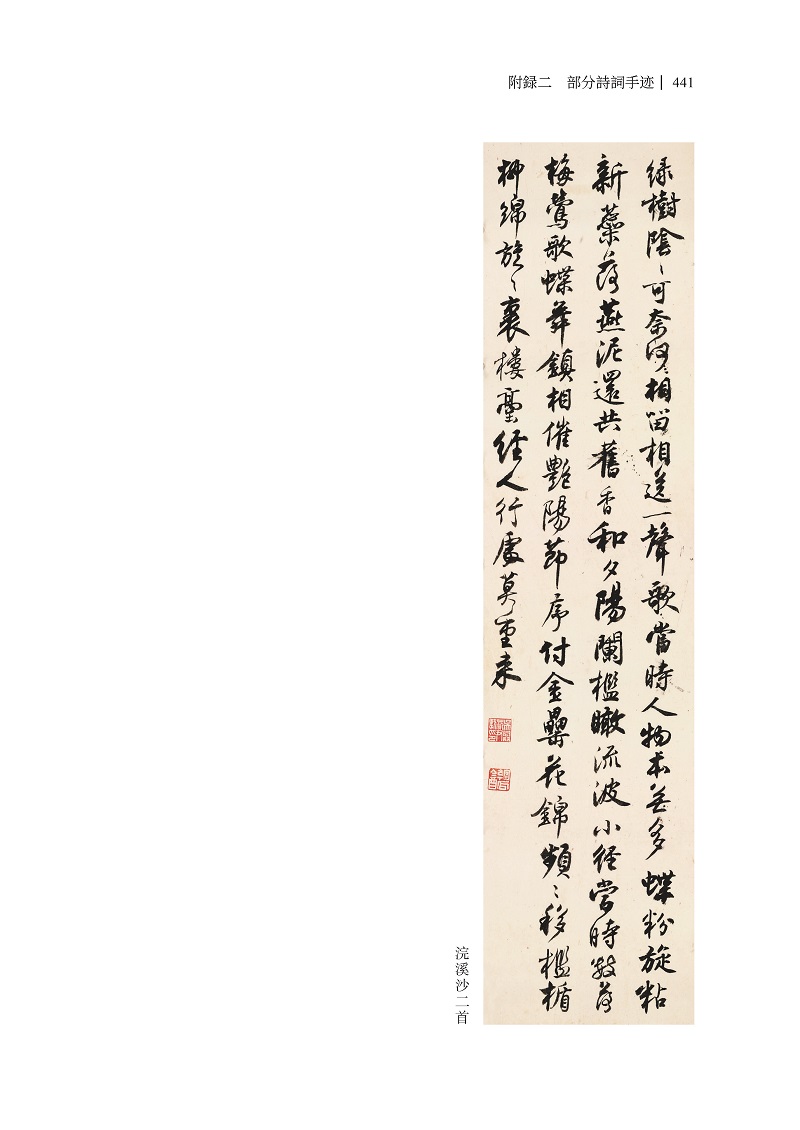 附録二　部分詩詞手迹 | 441
緑樹陰〻可奈何相留相送一聲歌當時人物本無多蝶粉旋粘
新蘂落燕泥還共舊香和夕陽闌檻瞰流波小徑當時數落
梅鶯歌蝶舞鎮相催艷陽節序付金罍花錦頻〻移檻楯
柳綿旋〻裹樓臺經人行處莫重來
浣溪沙二首